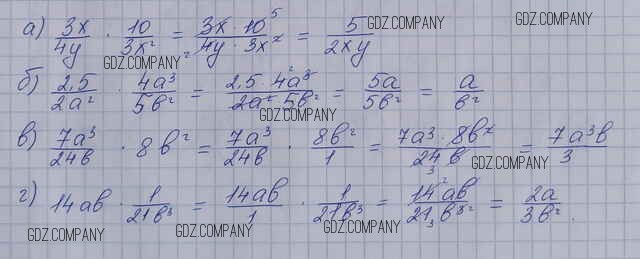 а) 3x/4y · 10/3x² = 3x · 10⁵/₂4y · 3x² = 5/2xy
GDZ.COMPANY
GDZ.COMPANY
б) 2,5/2a² · 4a³/5b² = 2,5 · 4²a³/2a² · 5b² = 5a/5b² = a/b²
GDZ.COMPANY
в) 7a³/24b · 8b² = 7a³/24b · 8b²/1 = 7a³ · 8b²/24₃b = 7a³b/3
GDZ.COMPANY
г) 14ab · 1/21b³ = 14ab/1 · 1/21b³ = 14²ab/21₃b³² = 2a/3b².
GDZ.COMPANY GDZ.COMPANY GDZ.COMPANY